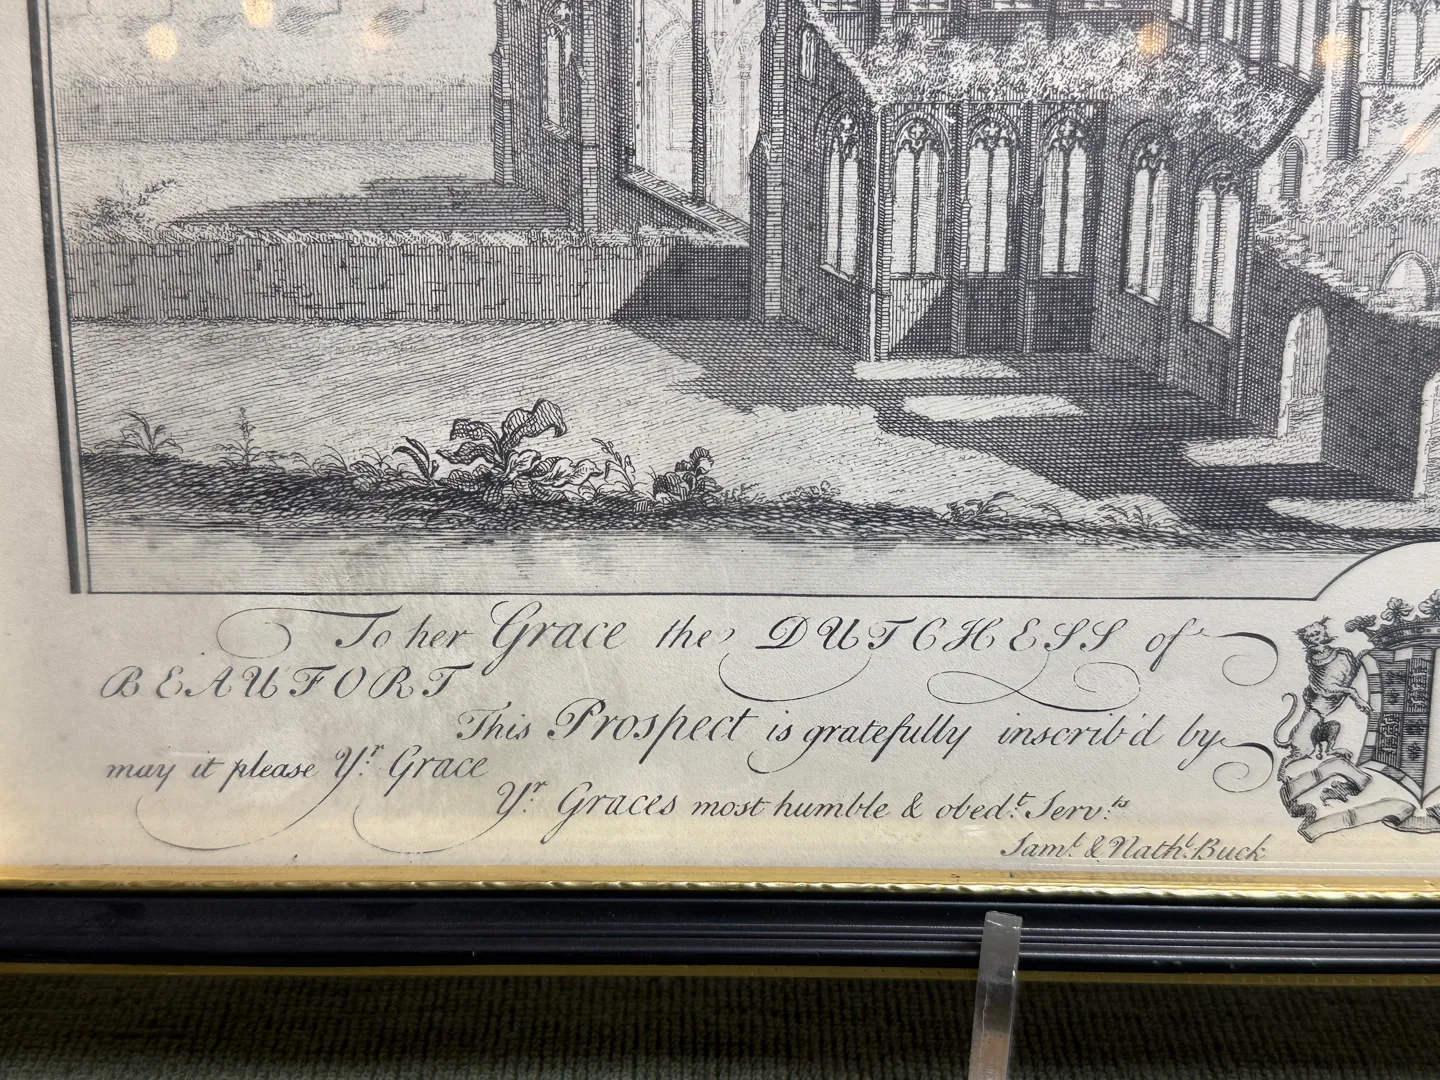 To her Grace the DUTCHESS of
BEAUFORT
This Prospect is gratefully inscrib'd by
may it please Yr. Grace
Yr Graces most humble & obedt. Servts
Saml. & Nathl. Buck